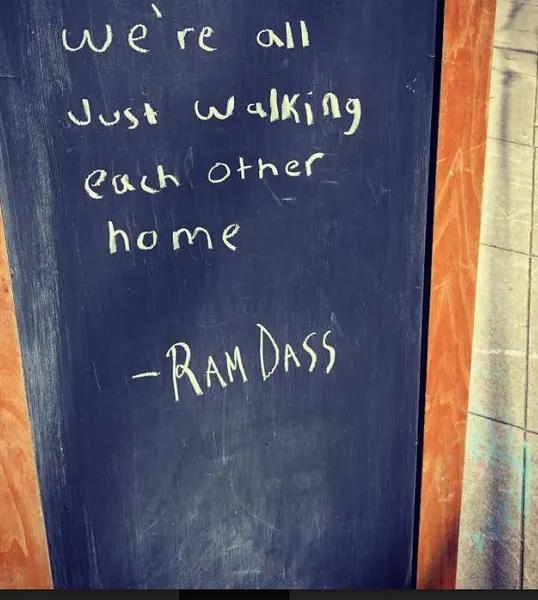 we're all
Just walking
each other
home
-RAM DASS